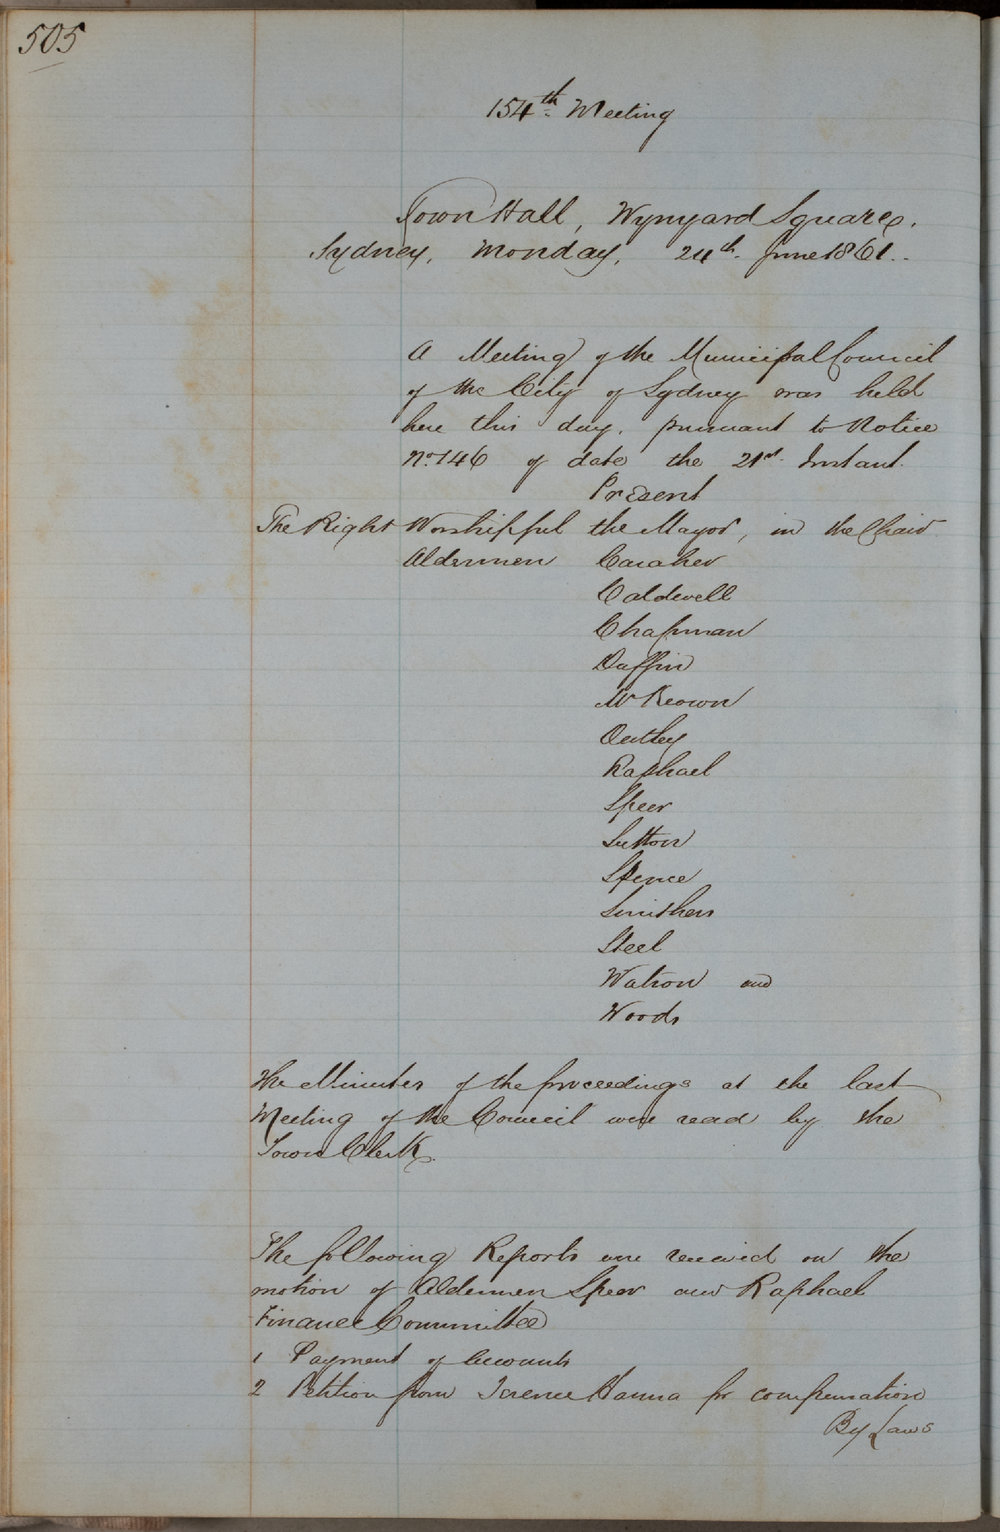 505
154th Meeting
Town Hall, Wynyard Square.
Sydney, Monday, 24th June 1861.
A Meeting of the Municipal Council
of the City of Sydney was held
here this day, pursuant to Notice
No. 146 of date the 21st Instant.
Present
The Right Worshipful the Mayor, in the Chair
Aldermen Caraher
Caldwell
Chapman
Daffin
McKeown
Oatley
Raphael
Speer
Sutton
Spence
Smithers
Steel
Watson and
Woods
The Minutes of the proceedings at the last
Meeting of the Council were read by the
Town Clerk.
The following Reports were received on the
motion of Aldermen Speer and Raphael
Finance Committee
1 Payment of Accounts
2 Petition from Terence Hanna for compensation
By Laws